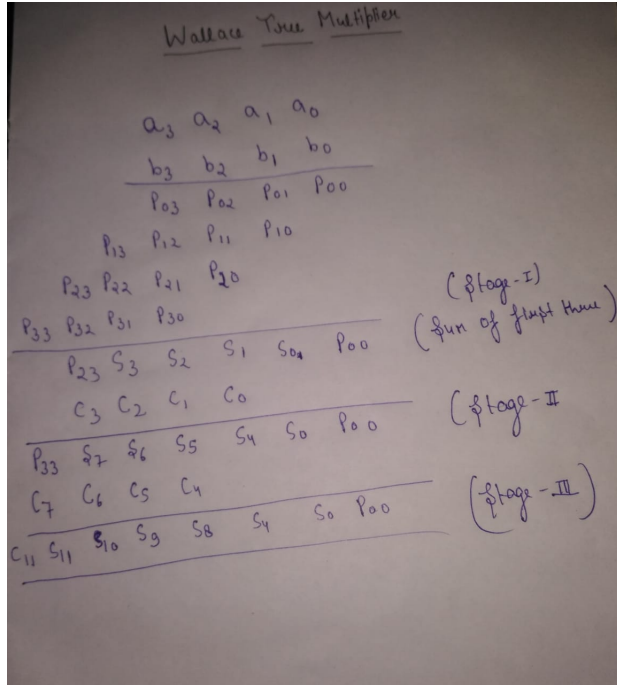 Wallace Tree Multiplier
a₃ a₂ a₁ a₀
b₃ b₂ b₁ b₀
P₀₃ P₀₂ P₀₁ P₀₀
P₁₃ P₁₂ P₁₁ P₁₀
P₂₃ P₂₂ P₂₁ P₂₀
P₃₃ P₃₂ P₃₁ P₃₀
(Stage-I)
(Sum of first three)
P₂₃ S₃ S₂ S₁ S₀ P₀₀
C₃ C₂ C₁ C₀
(Stage-II
P₃₃ S₇ S₆ S₅ S₄ S₀ P₀₀
C₇ C₆ C₅ C₄
(Stage-III)
C₁₁ S₁₁ S₁₀ S₉ S₈ S₄ S₀ P₀₀